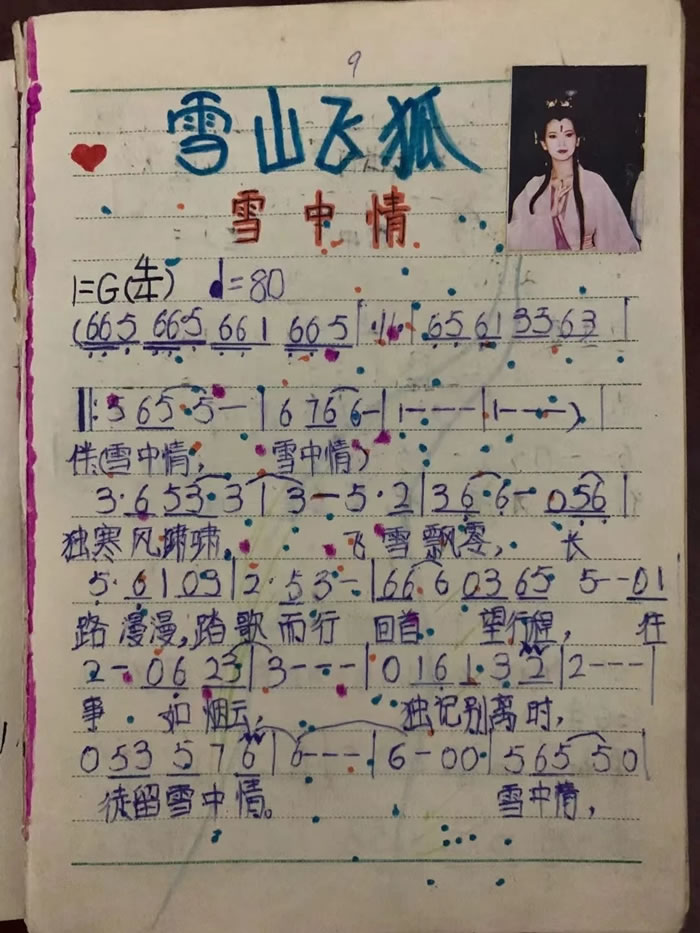 9
雪山飞狐
雪中情
1=G(4/4) ♩=80
(665 665 661 665 | ·/· | 65 61 33 63 |
‖: 5 65·5— | 6 766— | 1---- | 1----) |
伴(雪中情, 雪中情)
3·6 53·3 | 3—5·2 | 36·6— 056 |
独寒风啸啸, 飞雪飘零, 长
5·6103 | 2·53— | 66·6 03 65 5--01
路漫漫,踏歌而行 回首 望行程, 往
2—·06 23 | 3--- | 0161·32 | 2---
事 如烟云, 独记别离时,
053 576 | 6--- | 6—00 | 565 50
徒留雪中情。 雪中情,